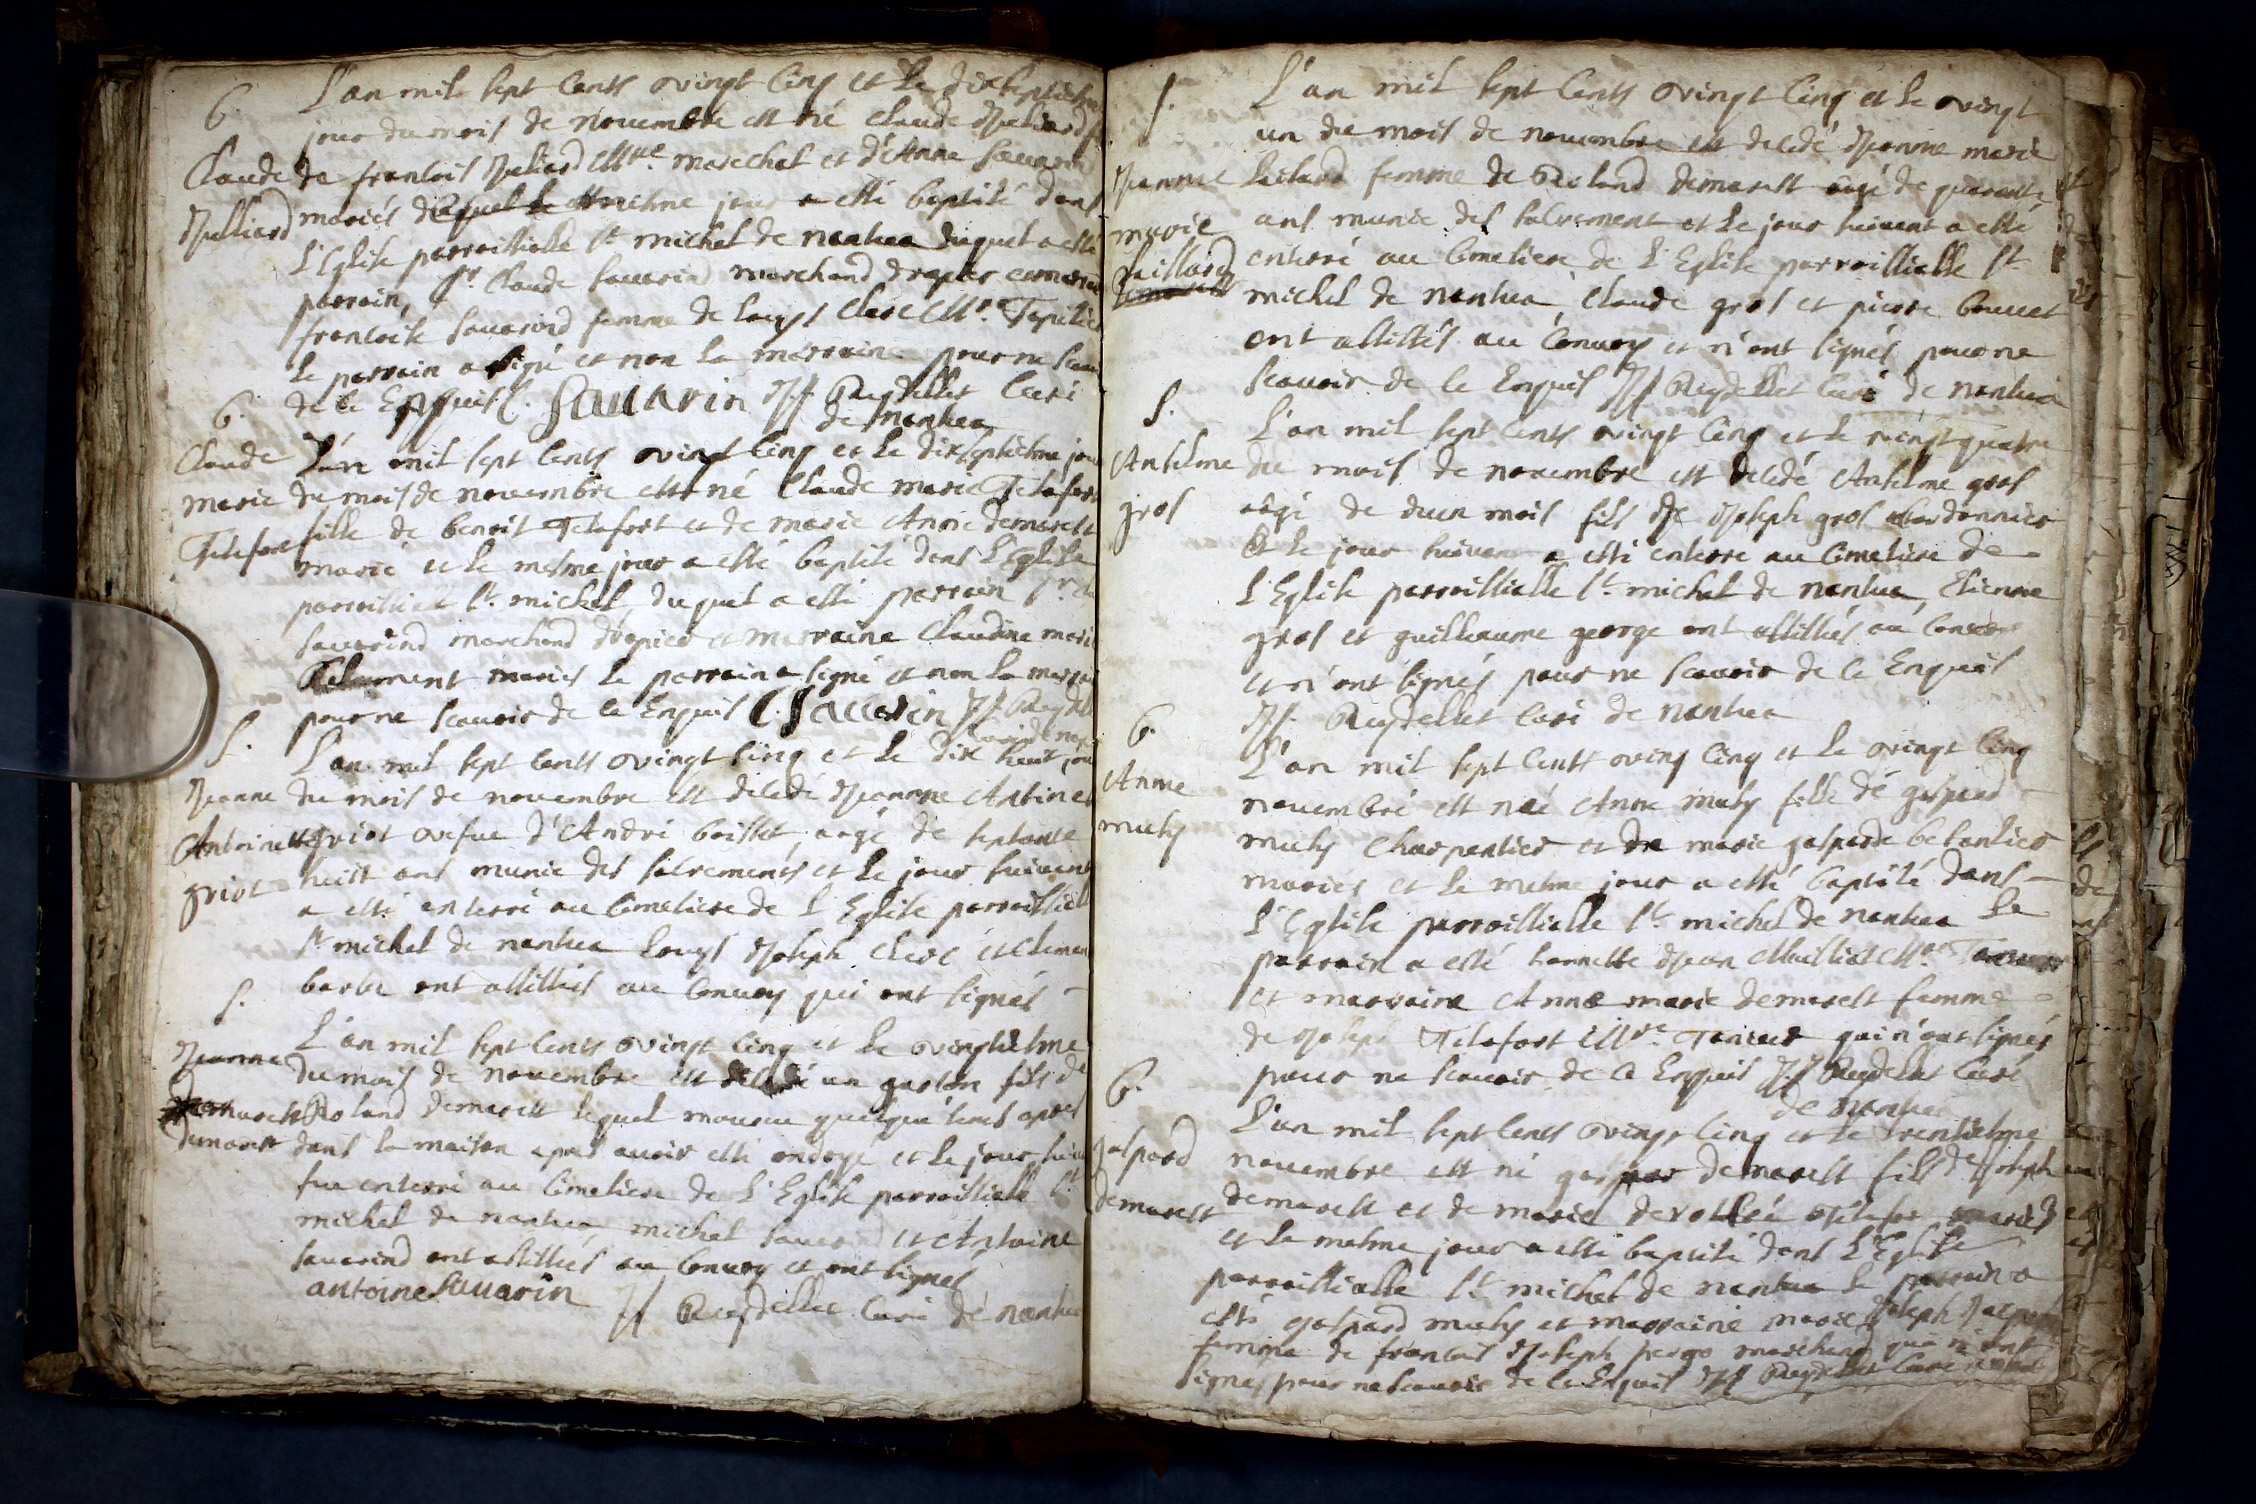 6.
L'an mil sept cents vingt cinq et le dix septiesme
jour du mois de novembre est né Claude Julliard
Claude
de francois Juliard M.re marechal et d'Anne Sauarin
Julliard
mariés le mesme jour a esté baptisé dans
L'Eglise parroissialle st michel de nantua duquel a esté
parrain, sr Claude Sauarin marchand drapier et marraine
francoise Sauarind femme de Louys Clerc M.re
Le parrain a signé et non la marraine pour ne scau
de ce Enquis C. Sauarin JJ Reydellet Curé
de Nantua
6.
Claude marie Telafort
L'an mil sept cents vingt cinq et le dix septiesme jour
du mois de novembre est né Claude marie Telafort
fille de benoit Telafort et de marie Anne demarest
marié et le mesme jour a esté baptisé dans L'Eglise
parroissiale st. michel, duquel a esté parrain sr.
Sauarind marchand drapier et marraine Claudine marie
mariés le parrain a signé et non la marrai
pour ne scauoir de ce Enquis C. Sauarin JJ Reydel
S.
Jeanne Antoinette griot
L'an mil sept cents vingt cinq et le dix huit jou
du mois de novembre est decedé Jeanne Antoinet
griot vefue d'André boisset, aagé de septante
huit ans munie des sacrements et le jour suiuant
a esté enterré au Cimetiere de L'Eglise parroissiall
st michel de nantua Louys Joseph Clerc et Clement
barbe ont assistés au Conuoy qui ont signés
S.
Jeanne
demarest
L'an mil sept cents vingt cinq et le vingtiesme
du mois de novembre est decedé un garson fils de
Roland demarest lequel mourut quelque tems apres
dans la maison apres auoir esté ondoye et le jour suiua
fut enterré au Cimetiere de L'Eglise parroissialle st
michel de nantua, michel Sauarind et Antoine
Sauarind ont assistés au Conuoy et ont signes
antoine Sauarin
JJ Reydellet Curé de nantua
S.
Jeanne marie Paillard
L'an mil sept cents vingt cinq et le vingt
un du mois de novembre est decedé Jeanne marie
femme de Roland demarest aagé de quarante
ans munie des sacrement et le jour suiuant a esté
enterré au Cimetiere de L'Eglise parroissialle st.
michel de nantua, Claude gros et pierre bouuet
ont assistés au Conuoy et n'ont signés pour ne
scauoir de ce Enquis JJ Reydellet Curé de nantua
S.
Antelme gros
L'an mil sept cents vingt cinq et le vingt quatre
du mois de novembre est decedé Antelme gros
aagé de deux mois fils de Joseph gros Cordonnier
Et le jour suiuant a esté enterre au Cimetiere de
L'Eglise parroissialle st. michel de nantua, Etienne
gros et guilleaume george ont assistés au Conuoy
et n'ont signés pour ne scauoir de ce Enquis
JJ. Reydellet Curé de nantua
6.
Anne muty
L'an mil sept cents vingt cinq et le vingt cinq
novembre est née Anne muty fille de gaspard
muty Charpentier et de marie gasparde
mariés et le mesme jour a esté baptisé dans
L'Eglise parroissialle st. michel de nantua le
parrain a esté honneste Jean M.re Taneur
et marraine Anne marie demarest femme
de Joseph Telafort M.re Taneur qui n'ont signés
pour ne scauoir de ce Enquis JJ Reydellet Curé
de nantua
6.
gaspard demarest
L'an mil sept cents vingt cinq et le trentiesme
novembre est né gaspar demarest fils de Joseph
demarest et de marie mariés
et le mesme jour a esté baptisé dans L'Eglise
parroissialle st. michel de nantua le parrain a
esté gaspard muty et marraine marie Joseph
femme de francois Joseph marchand qui n'ont
signes pour ne scauoir de ce Enquis JJ Reydellet Curé